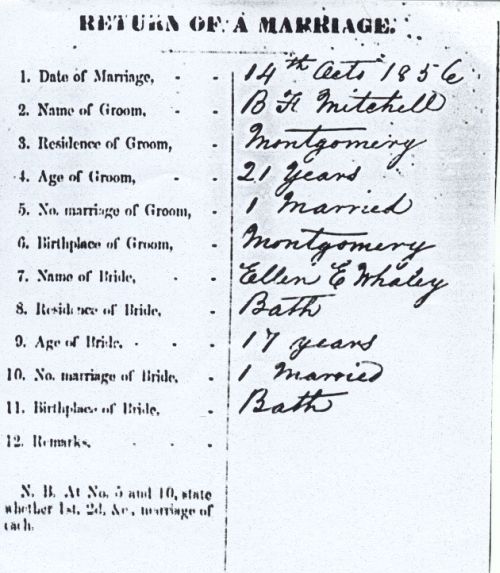 RETURN OF A MARRIAGE.
1. Date of Marriage, - - 14th Octo 1856
2. Name of Groom, - - B F Mitchell
3. Residence of Groom, - Montgomery
4. Age of Groom, - - 21 Years
5. No. marriage of Groom, - 1 Married
6. Birthplace of Groom, - Montgomery
7. Name of Bride, - - Ellen E Whaley
8. Residence of Bride, - Bath
9. Age of Bride, - - 17 years
10. No. marriage of Bride, - 1 Married
11. Birthplace of Bride, - Bath
12. Remarks, - - -
N. B. At No. 5 and 10, state
whether 1st, 2d, &c., marriage of
each.